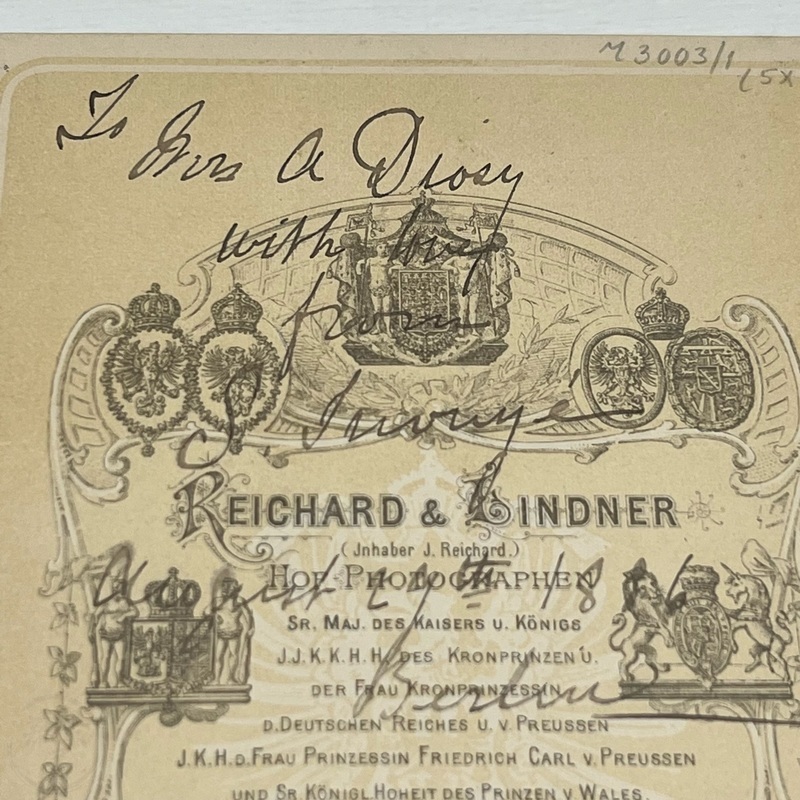 M 3003/1
(5x
To Mrs A Diosy
with love
from
S. Inouyé
REICHARD & LINDNER
(Jnhaber J. Reichard.)
HOF-PHOTOGRAPHEN
August th 18
SR. MAJ. DES KAISERS U. KÖNIGS
J.J.K.K.H.H. DES KRONPRINZEN U.
DER FRAU KRONPRINZESSIN
Berlin
D. DEUTSCHEN REICHES U. V. PREUSSEN
J.K.H.D. FRAU PRINZESSIN FRIEDRICH CARL V. PREUSSEN
UND SR. KÖNIGL. HOHEIT DES PRINZEN V. WALES.